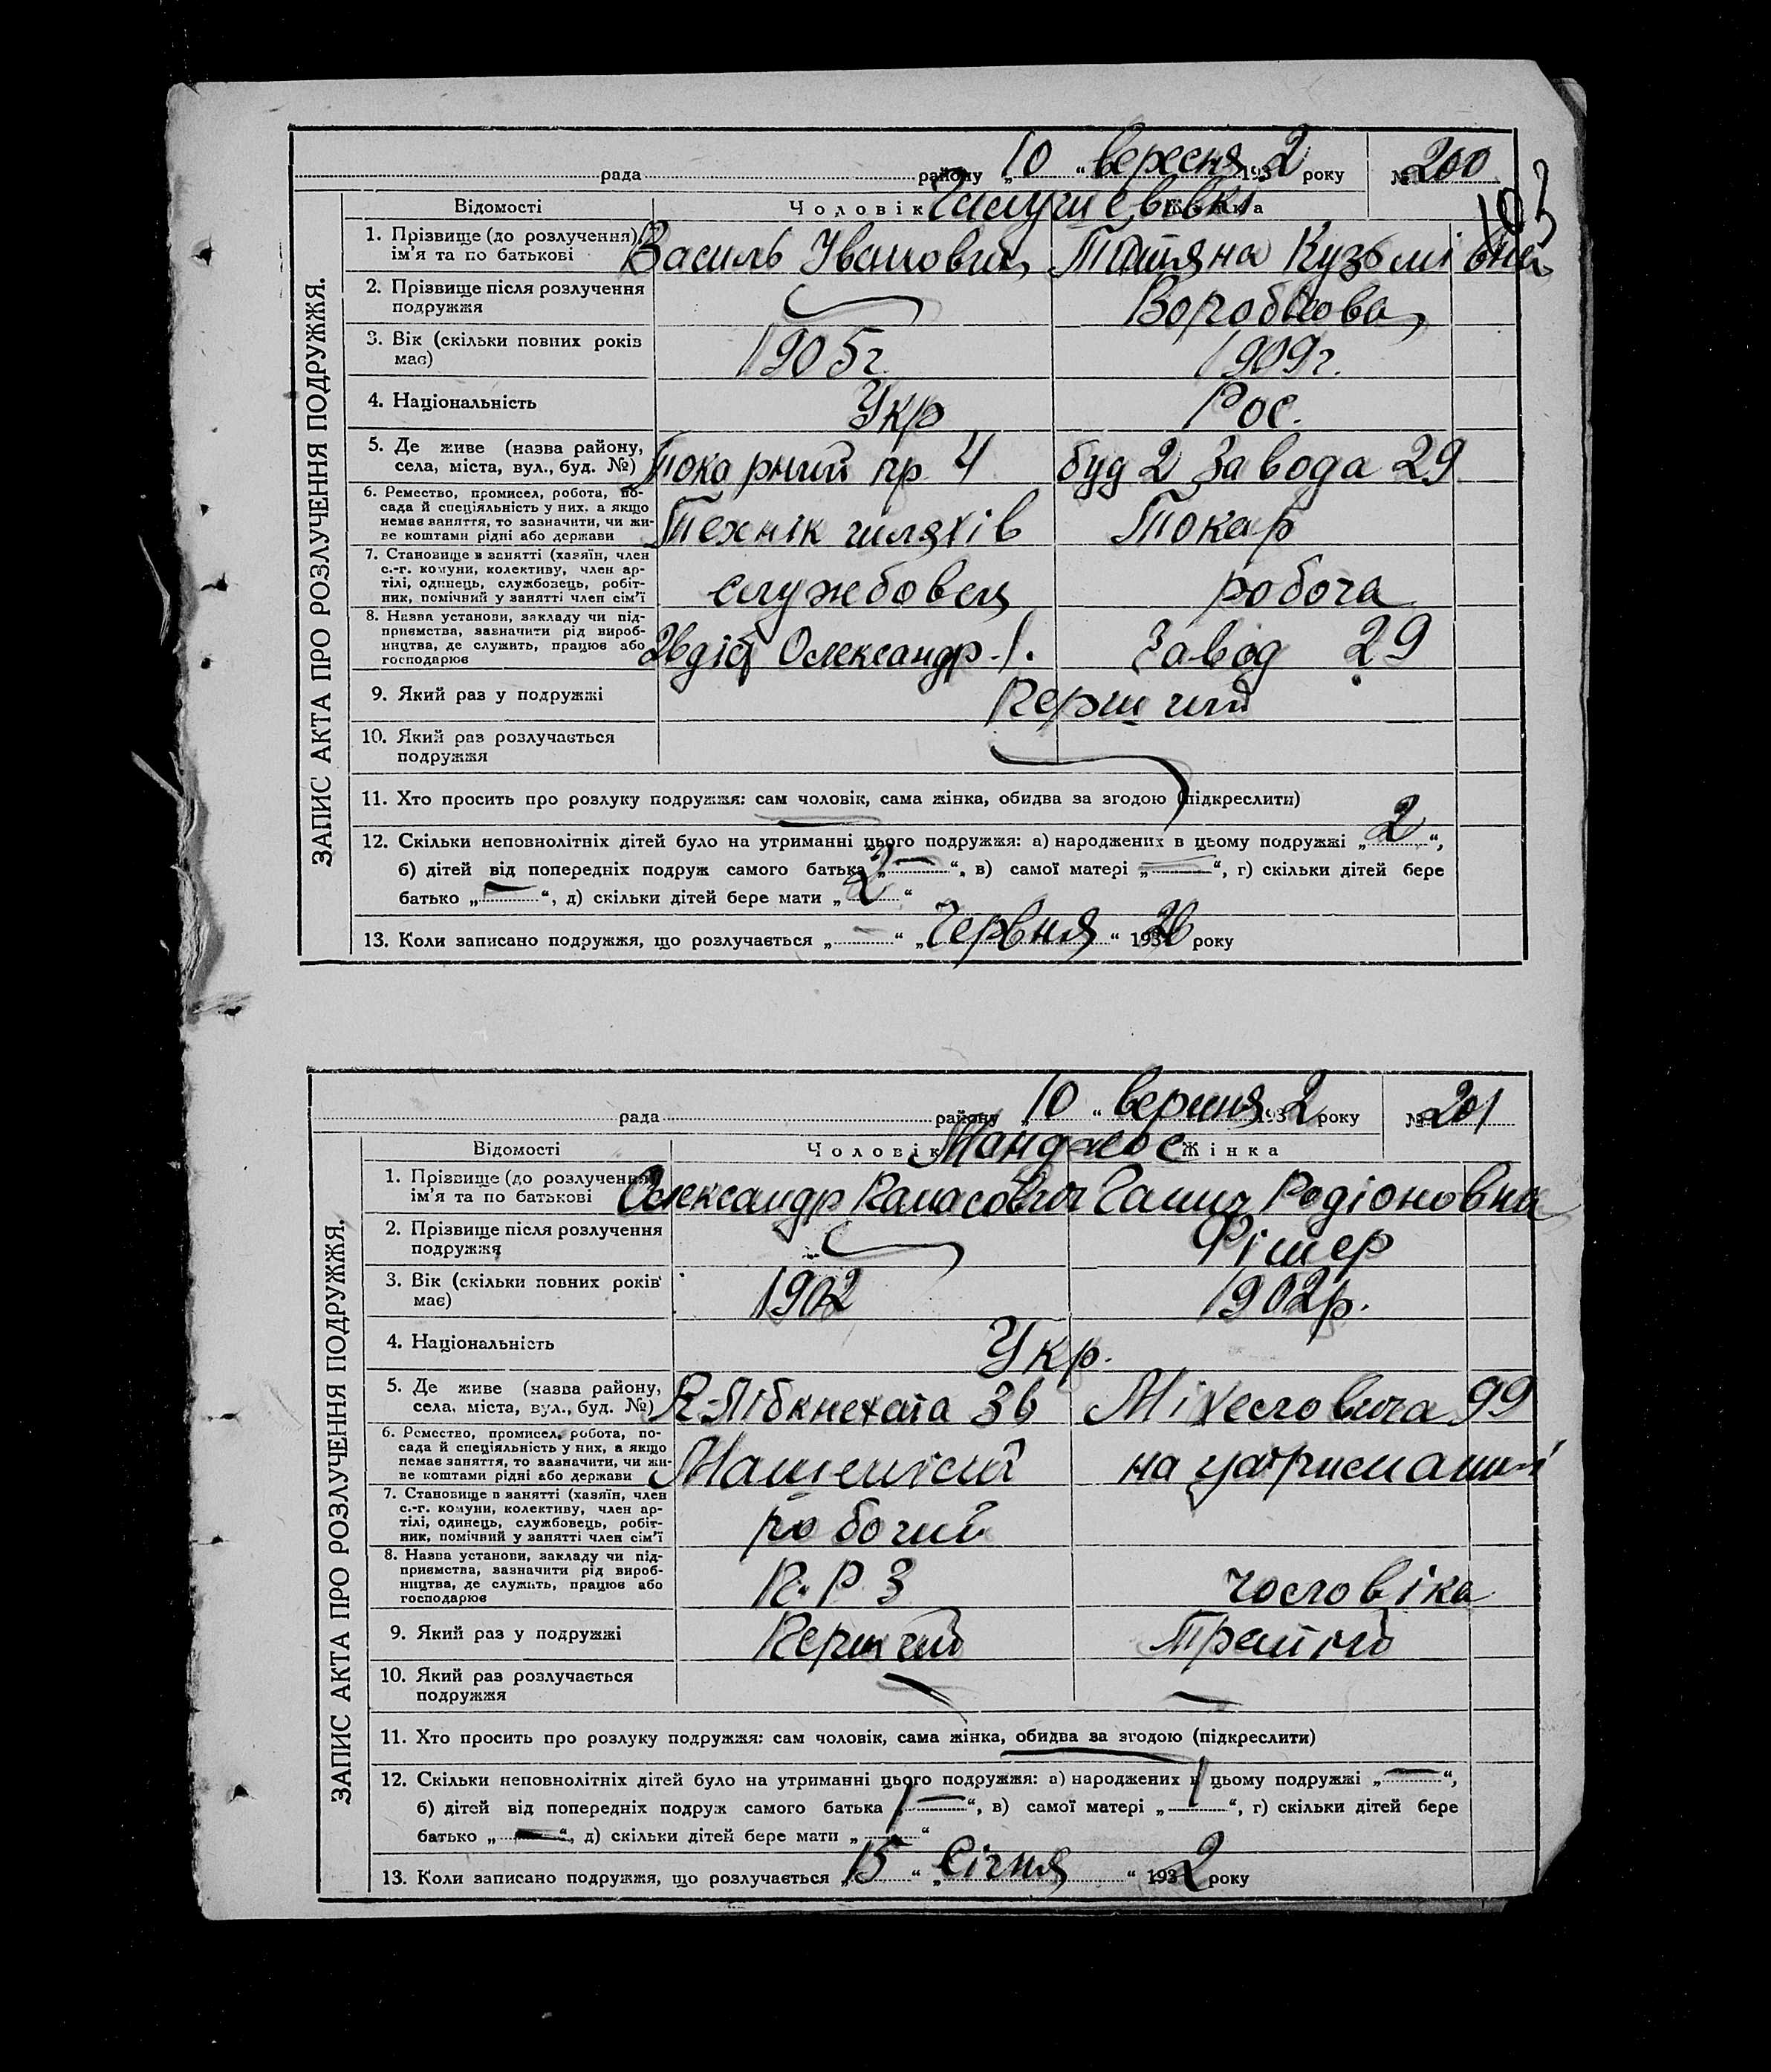 рада района „10 “ вересня 1932 року № 200
103
Відомості Чоловік Жінка
1. Прізвище (до розлучення) ім'я та по батькові Василь Іванович Татяна Кузьмівна
2. Прізвище після розлучення подружжя Воробйова
3. Вік (скільки повних років має) 1905 г. 1909 г.
4. Національність Укр Рос.
5. Де живе (назва району, села, міста, вул., буд. №) Токарний пр. 4 буд 2 Завода 29
6. Ремество, промисел, робота, посада й спеціяльність у них, а якщо немає заняття, то зазначити, чи живе коштами рідні або держави Технік шляхів Токар
7. Становище в занятті (хазяїн, член с.-г. комуни, колективу, член артілі, одинець, службовець, робітник, помічний у занятті член сім'ї службовец робоча
8. Назва установи, закладу чи підприємства, зазначити рід виробництва, де служить, працює або господарює Олександр. Завод 29
9. Який раз у подружжі Перший
10. Який раз розлучається подружжя
11. Хто просить про розлуку подружжя: сам чоловік, сама жінка, обидва за згодою (підкреслити)
12. Скільки неповнолітніх дітей було на утриманні цього подружжя: а) народжених в цьому подружжі „ 2 “,
б) дітей від попередніх подруж самого батька „ — “, в) самої матері „ — “, г) скільки дітей бере
батько „ — “, д) скільки дітей бере мати „ 2 “
13. Коли записано подружжя, що розлучається „ — “ „ Червня “ 193 26 року
ЗАПИС АКТА ПРО РОЗЛУЧЕННЯ ПОДРУЖЖЯ.
рада району „10 “ версня 1932 року № 201
Відомості Чоловік Манджос Жінка
1. Прізвище (до розлучення) ім'я та по батькові Олександр Панасович Ганна Родіоновна
2. Прізвище після розлучення подружжя Фішер
3. Вік (скільки повних років має) 1902 1902 р.
4. Національність Укр.
5. Де живе (назва району, села, міста, вул., буд. №) К-Лібкнехта 36 99
6. Ремество, промисел, робота, посада й спеціяльність у них, а якщо немає заняття, то зазначити, чи живе коштами рідні або держави Машиніст на утриманні
7. Становище в занятті (хазяїн, член с.-г. комуни, колективу, член артілі, одинець, службовець, робітник, помічний у занятті член сім'ї робочий
8. Назва установи, закладу чи підприємства, зазначити рід виробництва, де служить, працює або господарює П.Р.З чоловіка
9. Який раз у подружжі Перший Третій
10. Який раз розлучається подружжя — —
11. Хто просить про розлуку подружжя: сам чоловік, сама жінка, обидва за згодою (підкреслити)
12. Скільки неповнолітніх дітей було на утриманні цього подружжя: а) народжених в цьому подружжі „ — “,
б) дітей від попередніх подруж самого батька „ — “, в) самої матері „ 1 “, г) скільки дітей бере
батько „ — “, д) скільки дітей бере мати „ 1 “
13. Коли записано подружжя, що розлучається „ 15 “ „ Січня “ 1932 року
ЗАПИС АКТА ПРО РОЗЛУЧЕННЯ ПОДРУЖЖЯ.